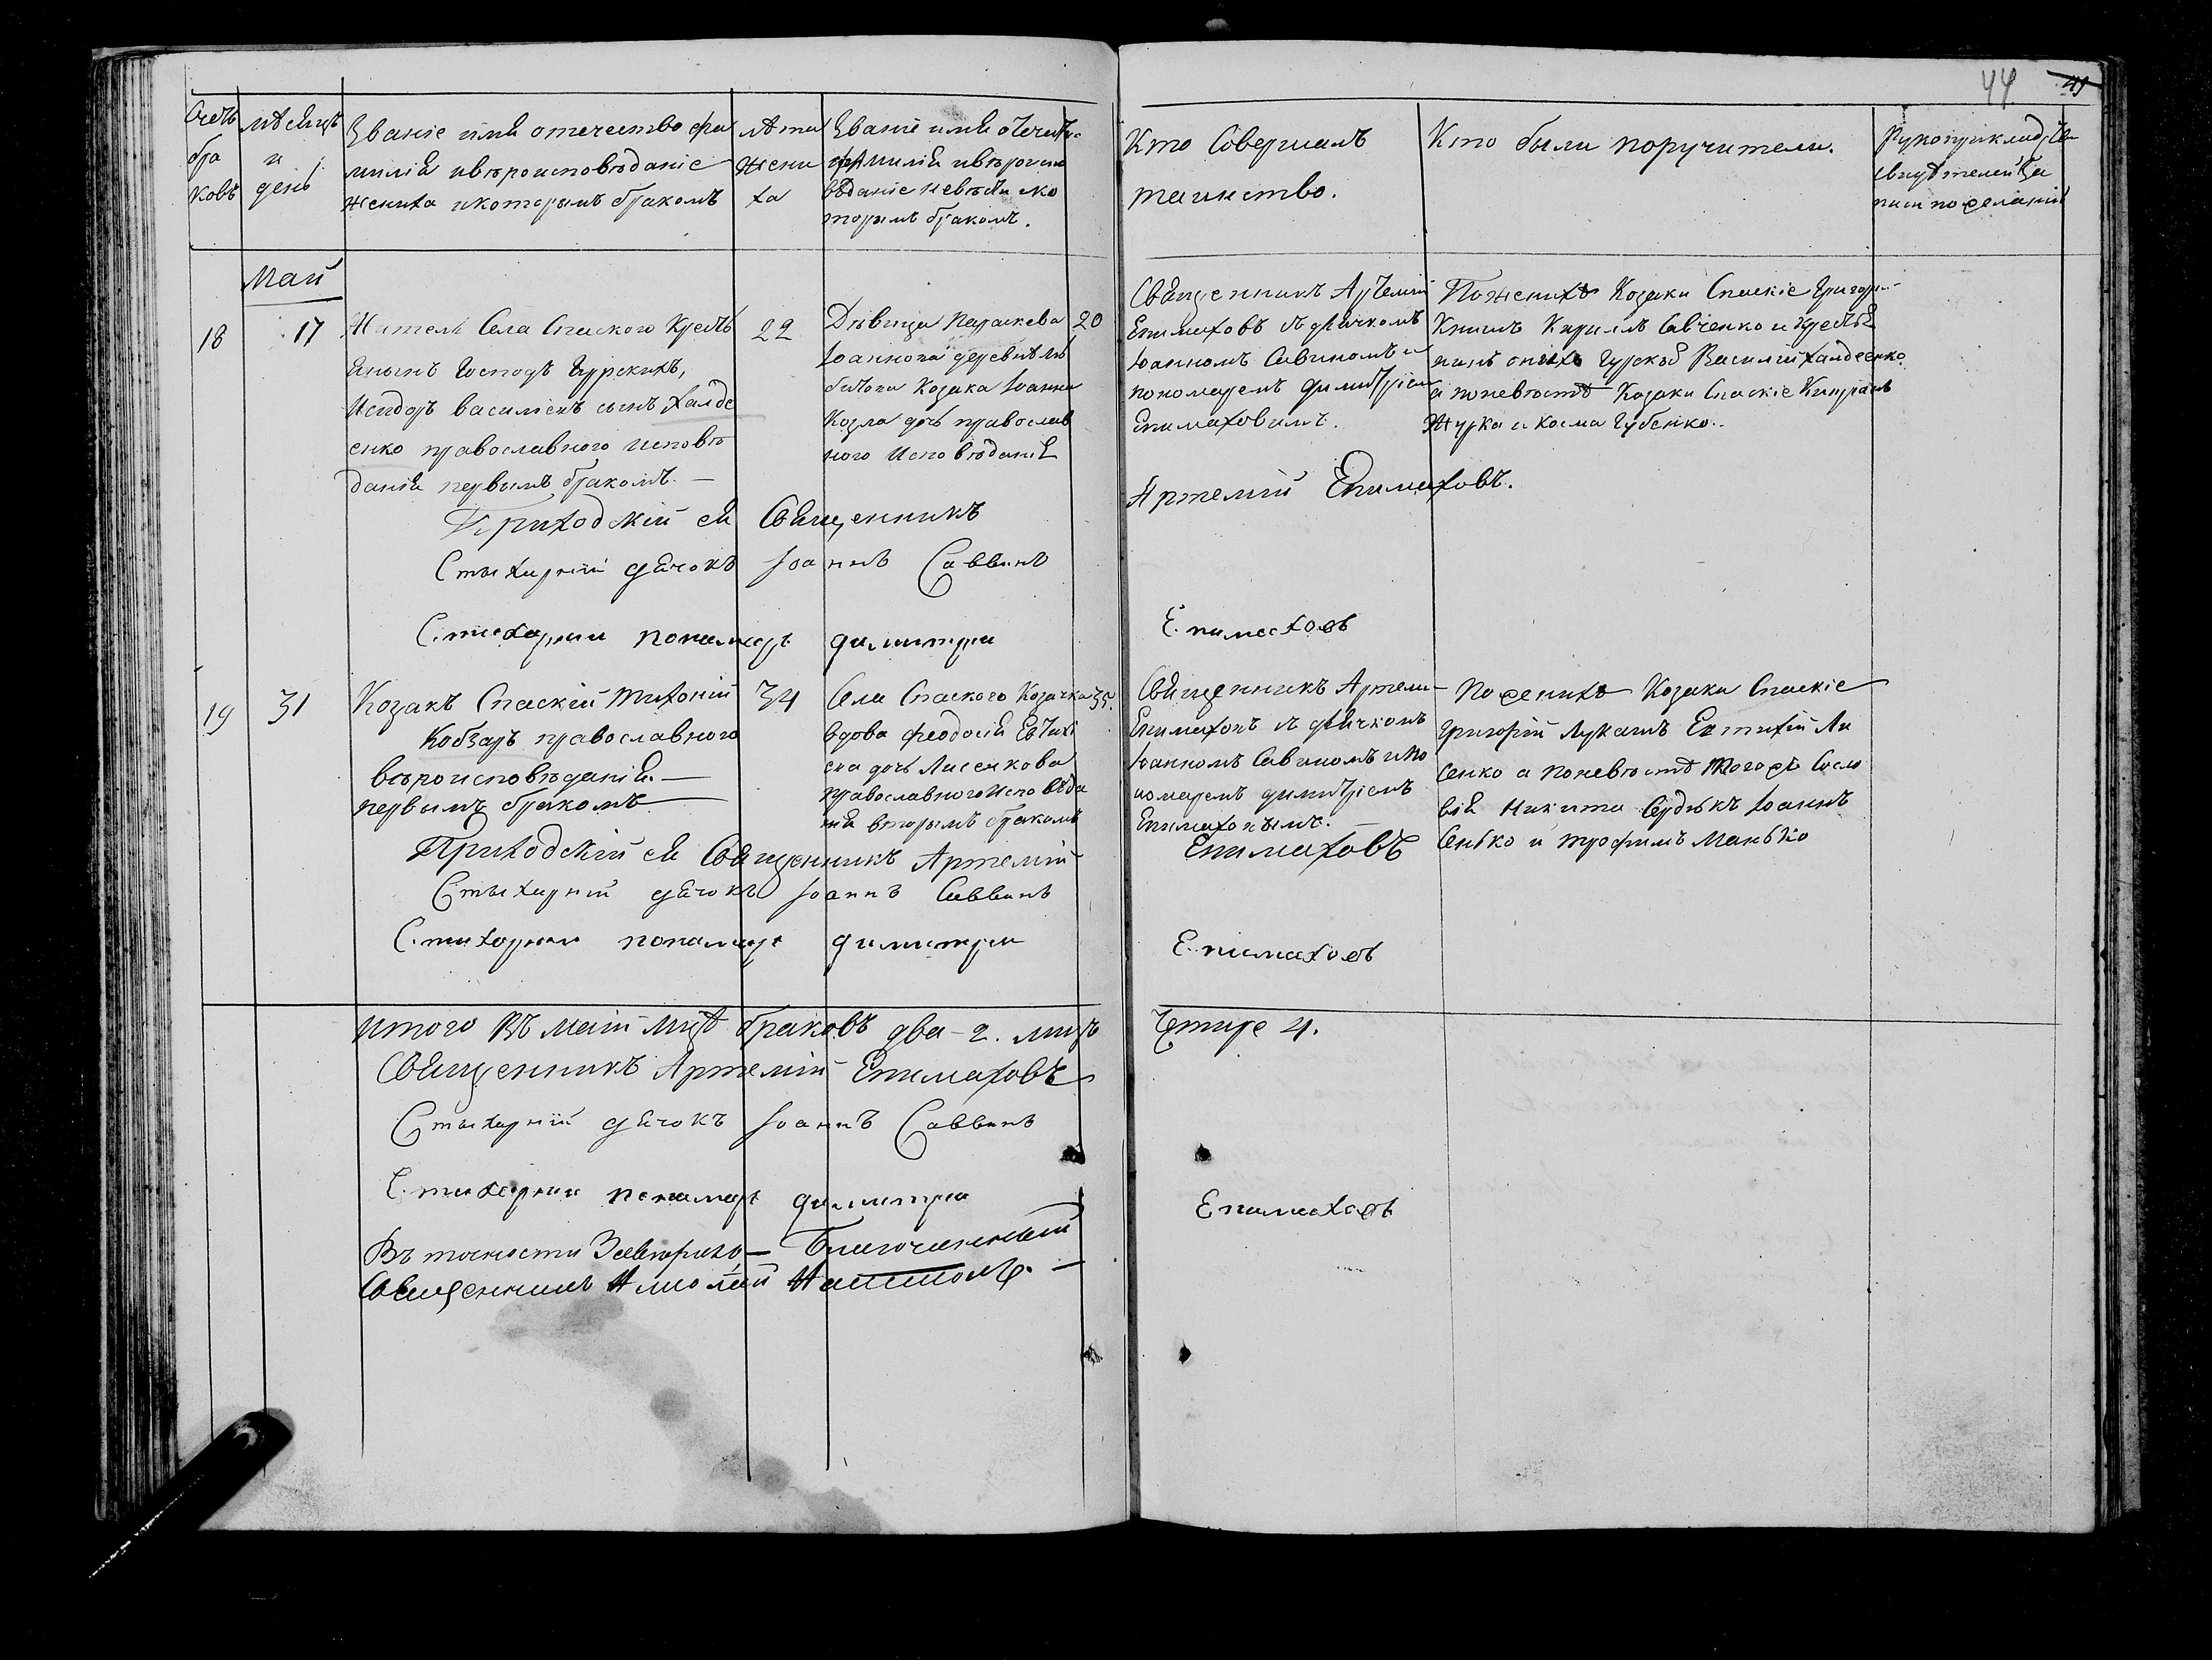 44 41
Счетъ браковъ
мѣсяцъ и день
Званіе имя отечество фамилія и вѣроисповѣданіе жениха и которымъ бракомъ
лѣта жениха
Званіе имя отечест. фамилія и вѣроисповѣданіе невѣсти и которымъ бракомъ.
Кто Совершалъ таинство.
Кто были поручители.
Рукоприкладство свидѣтелей записи по желанію
Май
18
17
Житель Села Спаского Крестъ
янынъ Господъ Гурскихъ,
Исидоръ василіевъ сынъ Халде
енко православного исповѣ
данія первымъ бракомъ. —
22
Дѣвица Параскева
Іоаннова деревнѣ
Козака Іоанна
Козла дочь православ
ного Исповѣданія
20
Священникъ Артемій
Епимаховъ съ дячкомъ
Іоанномъ Савиномъ и
пономаремъ Димитріем
Епимаховимъ.
По женихѣ Козаки Спаскіе Григори
Кириллъ Савченко и крестья
нинъ Гурскъ Василій Халдеенко
а поневѣстѣ Козаки Спаскіе Кипріанъ
Журка и Косма Губенко.
Приходскій ея Священникъ Артемій Епимаховъ.
Стыхарній дячокъ Іоаннъ Саввинъ
Стихарнии пономарь Димитри Епимаховъ
19
31
Козакъ Спаскій Тихоній
Кобзарь православного
вѣроисповѣданія. —
первымъ бракомъ —
34
Села Спаского Козачка
вдова Феодосія Евтихі
ева дочь Лисенкова
православного Исповѣда
нія вторымъ бракомъ
35.
Священникъ Артеми
Епимаховъ съ дячкомъ
Іоанномъ Савиномъ и по
номаремъ Димитріемъ
Епимаховымъ.
По женихѣ Козаки Спаскіе
Григорій Лукашъ Евтихій Ли
сенко а поневѣстѣ Тогожъ Сосло
вія Никита Сердюкъ Іоаннъ
Сенько и Трофимъ Манько
Приходскій ея Священникъ Артемій Епимаховъ
Стыхарній дячокъ Іоаннъ Саввинъ
Стихарнии пономарь Димитри Епимаховъ
Итого въ маіи мцѣ браковъ два - 2. лицъ Четире 4.
Священникъ Артемій Епимаховъ
Стыхарній дячокъ Іоаннъ Саввинъ
Стихарнии пономарь Димитри Епимаховъ
Въ точности Завѣряю — Благочинный
Священникъ